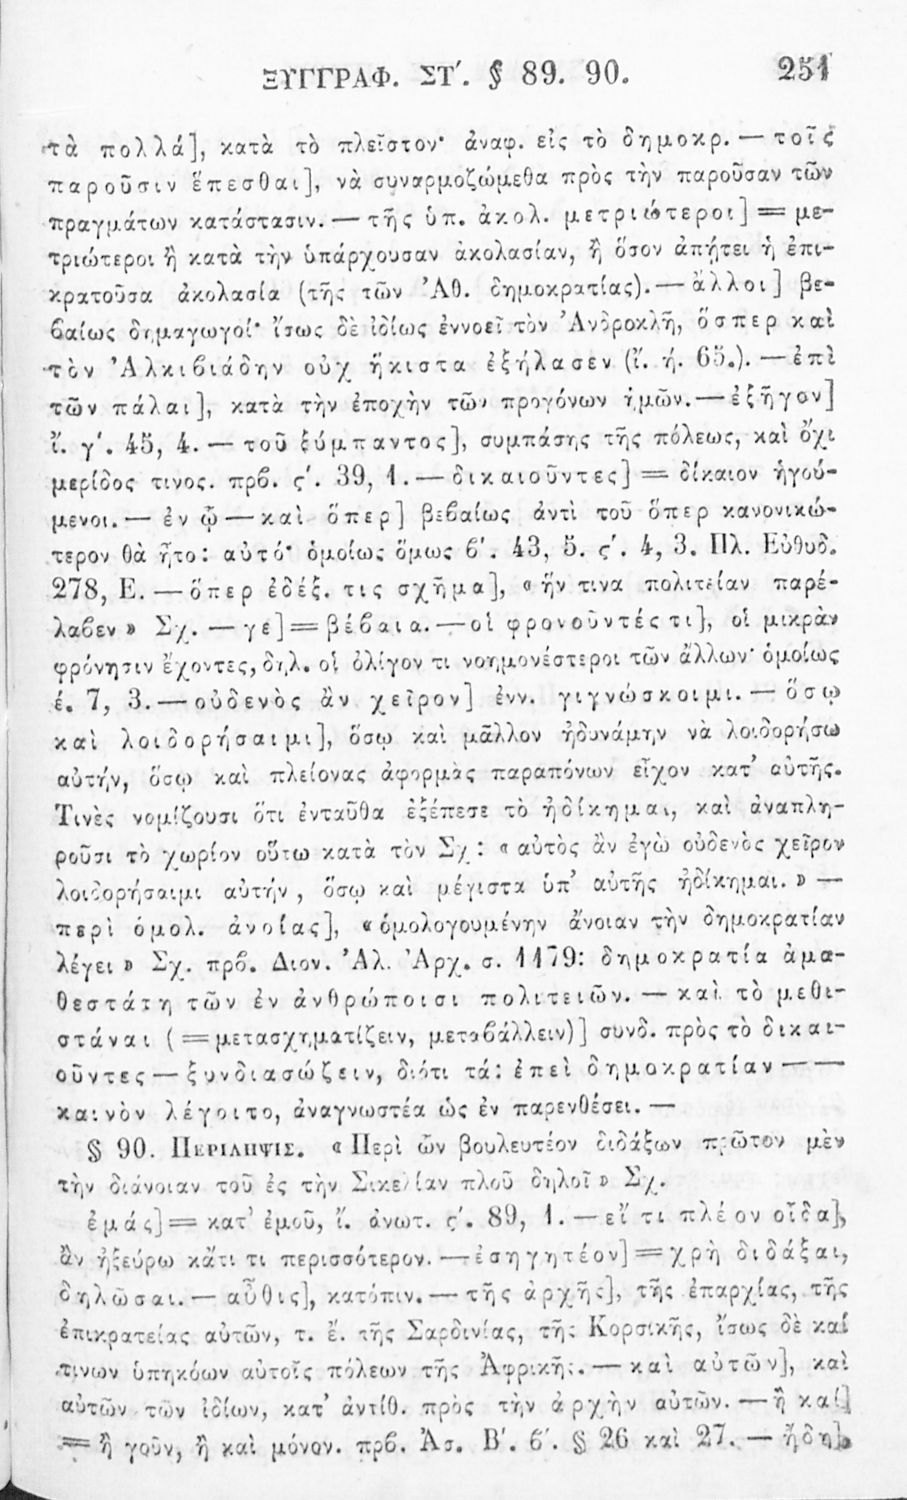 ΞΥΓΓΡΑΦ. ΣΤ΄. § 89. 90. 251
τὰ πολλά], κατὰ τὸ πλεῖστον· ἀναφ. εἰς τὸ δημοκρ. — τοῖς
παροῦσιν ἕπεσθαι], νὰ συναρμοζώμεθα πρὸς τὴν παροῦσαν τῶν
πραγμάτων κατάστασιν. — τῆς ὑπ. ἀκολ. μετριώτεροι] = με-
τριώτεροι ἢ κατὰ τὴν ὑπάρχουσαν ἀκολασίαν, ἢ ὅσον ἀπῄτει ἡ ἐπι-
κρατοῦσα ἀκολασία (τῆς τῶν Ἀθ. δημοκρατίας). — ἄλλοι] βε-
βαίως δημαγωγοί· ἴσως δὲ ἰδίως ἐννοεῖ τὸν Ἀνδροκλῆ, ὅσπερ καὶ
τὸν Ἀλκιβιάδην οὐχ ἥκιστα ἐξήλασεν (ἴ. ή. 65.). — ἐπὶ
τῶν πάλαι], κατὰ τὴν ἐποχὴν τῶν προγόνων ἡμῶν. — ἐξῆγον]
ἴ. γ΄. 45, 4. — τοῦ ξύμπαντος], συμπάσης τῆς πόλεως, καὶ ὄχι
μερίδος τινος. πρβ. ς΄. 39, 1. — δικαιοῦντες] = δίκαιον ἡγού-
μενοι. — ἐν ᾧ — καὶ ὅπερ] βεβαίως ἀντὶ τοῦ ὅπερ κανονικώ-
τερον θὰ ἦτο: αὐτό· ὁμοίως ὅμως β΄. 43, 5. ς΄. 4, 3. Πλ. Εὐθυδ.
278, Ε. — ὅπερ ἐδέξ. τις σχῆμα], «ἥν τινα πολιτείαν παρέ-
λαβεν» Σχ. — γε] = βέβαια. — οἱ φρονοῦντές τι], οἱ μικρὰν
φρόνησιν ἔχοντες, δηλ. οἱ ὀλίγον τι νοημονέστεροι τῶν ἄλλων· ὁμοίως
έ. 7, 3. — οὐδενὸς ἂν χεῖρον] ἐνν. γιγνώσκοιμι. — ὅσῳ
καὶ λοιδορήσαιμι], ὅσῳ καὶ μᾶλλον ἠδυνάμην νὰ λοιδορήσω
αὐτήν, ὅσῳ καὶ πλείονας ἀφορμὰς παραπόνων εἶχον κατ' αὐτῆς.
Τινὲς νομίζουσι ὅτι ἐνταῦθα ἐξέπεσε τὸ ἠδίκημαι, καὶ ἀναπλη-
ροῦσι τὸ χωρίον οὕτω κατὰ τὸν Σχ: «αὐτὸς ἂν ἐγὼ οὐδενὸς χεῖρον
λοιδορήσαιμι αὐτήν, ὅσῳ καὶ μέγιστα ὑπ' αὐτῆς ἠδίκημαι.» —
περὶ ὁμολ. ἀνοίας], «ὁμολογουμένην ἄνοιαν τὴν δημοκρατίαν
λέγει» Σχ. πρβ. Διον. Ἀλ. Ἀρχ. σ. 1179: δημοκρατία ἀμα-
θεστάτη τῶν ἐν ἀνθρώποισι πολιτειῶν. — καὶ τὸ μεθι-
στάναι (= μετασχηματίζειν, μεταβάλλειν)] συνδ. πρὸς τὸ δικαι-
οῦντες — ξυνδιασώζειν, διότι τά: ἐπεὶ δημοκρατίαν — —
καινὸν λέγοιτο, ἀναγνωστέα ὡς ἐν παρενθέσει. —
§ 90. ΠΕΡΙΛΗΨΙΣ. «Περὶ ὧν βουλευτέον διδάξων πρῶτον μὲν
τὴν διάνοιαν τοῦ ἐς τὴν Σικελίαν πλοῦ δηλοῖ» Σχ.
ἐμάς] = κατ' ἐμοῦ, ἴ. ἀνωτ. ς΄. 89, 1. — εἴ τι πλέον οἶδα],
ἂν ἠξεύρω κἄτι τι περισσότερον. — ἐσηγητέον] = χρὴ διδάξαι,
δηλῶσαι. — αὖθις], κατόπιν. — τῆς ἀρχῆς], τῆς ἐπαρχίας, τῆς
ἐπικρατείας αὐτῶν, τ. ἔ. τῆς Σαρδινίας, τῆς Κορσικῆς, ἴσως δὲ καί
τινων ὑπηκόων αὐτοῖς πόλεων τῆς Ἀφρικῆς. — καὶ αὐτῶν], καὶ
αὐτῶν τῶν ἰδίων, κατ' ἀντίθ. πρὸς τὴν ἀρχὴν αὐτῶν. — ἢ καί]
= ἢ γοῦν, ἢ καὶ μόνον. πρβ. Ἀσ. Β΄. β΄. § 26 καὶ 27. — ἤδη],